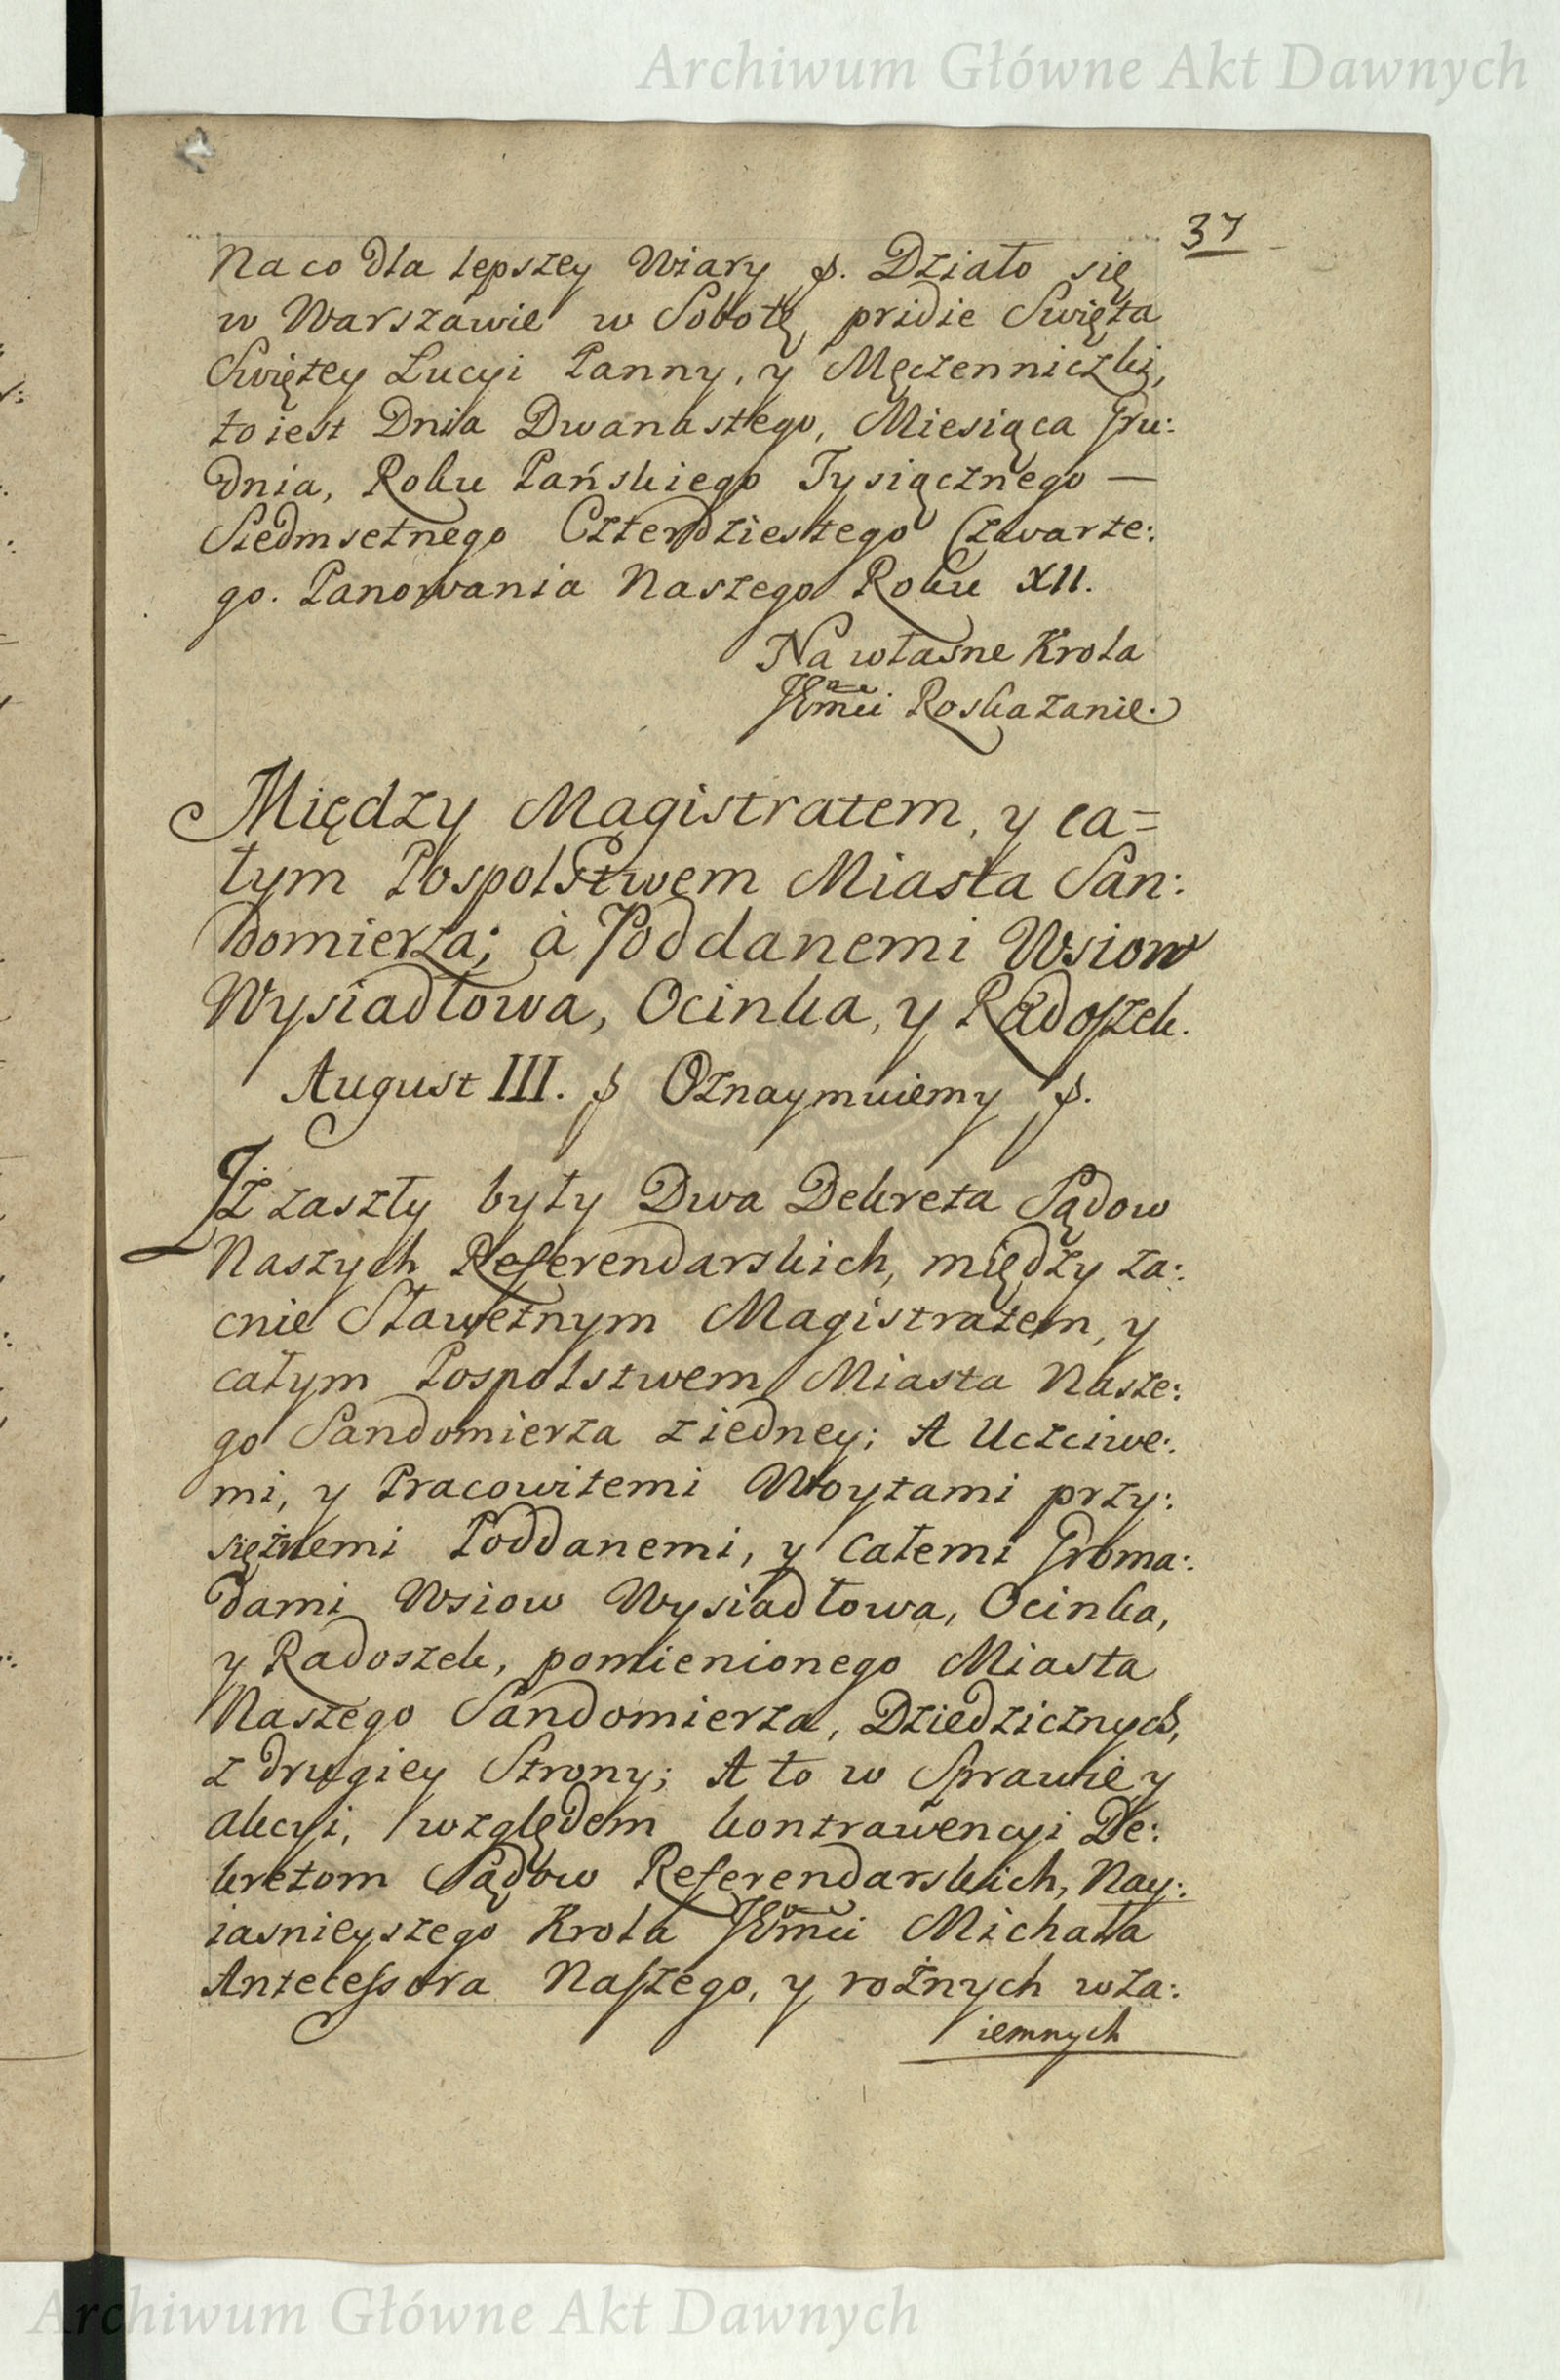 Archiwum Główne Akt Dawnych
37
Na co dla lepszey Wiary p. Działo się
w Warszawie w Sobotę, pridie Swięta
Swiętey Lucyi Panny, y Męczenniczki,
to iest Dnia Dwanastego, Miesiąca Gru:
dnia, Roku Pańskiego Tysiącznego —
Siedmsetnego Czterdziestego Czwarte:
go. Panowania Naszego Roku XII.
Na własne Krola
JKmci Roskazanie.
Między Magistratem, y ca=
łym Pospolstwem Miasta San:
domierza; à Poddanemi Wsiow
Wysiadłowa, Ocinka, y Radoszek.
August III. p Oznaymuiemy p.
Iż zaszły były Dwa Dekreta Sądow
Naszych Referendarskich, między za:
cnie Sławetnym Magistratem, y
całym Pospolstwem Miasta Nasze:
go Sandomierza z iedney; A Uczciwe:
mi, y Pracowitemi Woytami przy:
siężnemi Poddanemi, y całemi Groma:
dami Wsiow Wysiadłowa, Ocinka,
y Radoszek, pomienionego Miasta
Naszego Sandomierza, Dziedzicznych,
z drugiey Strony; A to w Sprawie y
akcyi, względem kontrawencyi De:
kretom Sądow Referendarskich, Nay:
iasnieyszego Krola JKmci Michała
Antecessora Naszego, y rożnych wza:
iemnych
Archiwum Główne Akt Dawnych